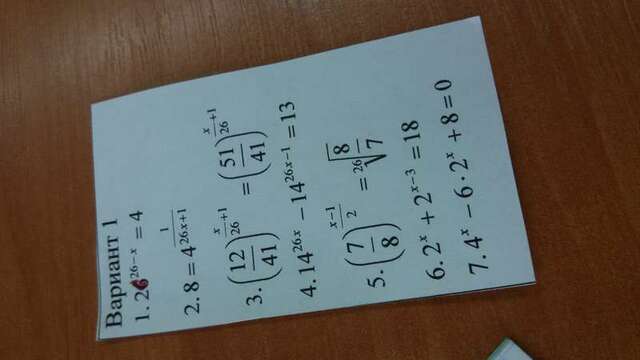 Вариант 1
1. 26^{26-x} = 4
2. 8 = 4^{\frac{1}{26x+1}}
3. \left(\frac{12}{41}\right)^{\frac{x}{26}+1} = \left(\frac{51}{41}\right)^{\frac{x}{26}+1}
4. 14^{26x} - 14^{26x-1} = 13
5. \left(\frac{7}{8}\right)^{\frac{x-1}{2}} = \sqrt[26]{\frac{8}{7}}
6. 2^x + 2^{x-3} = 18
7. 4^x - 6 \cdot 2^x + 8 = 0